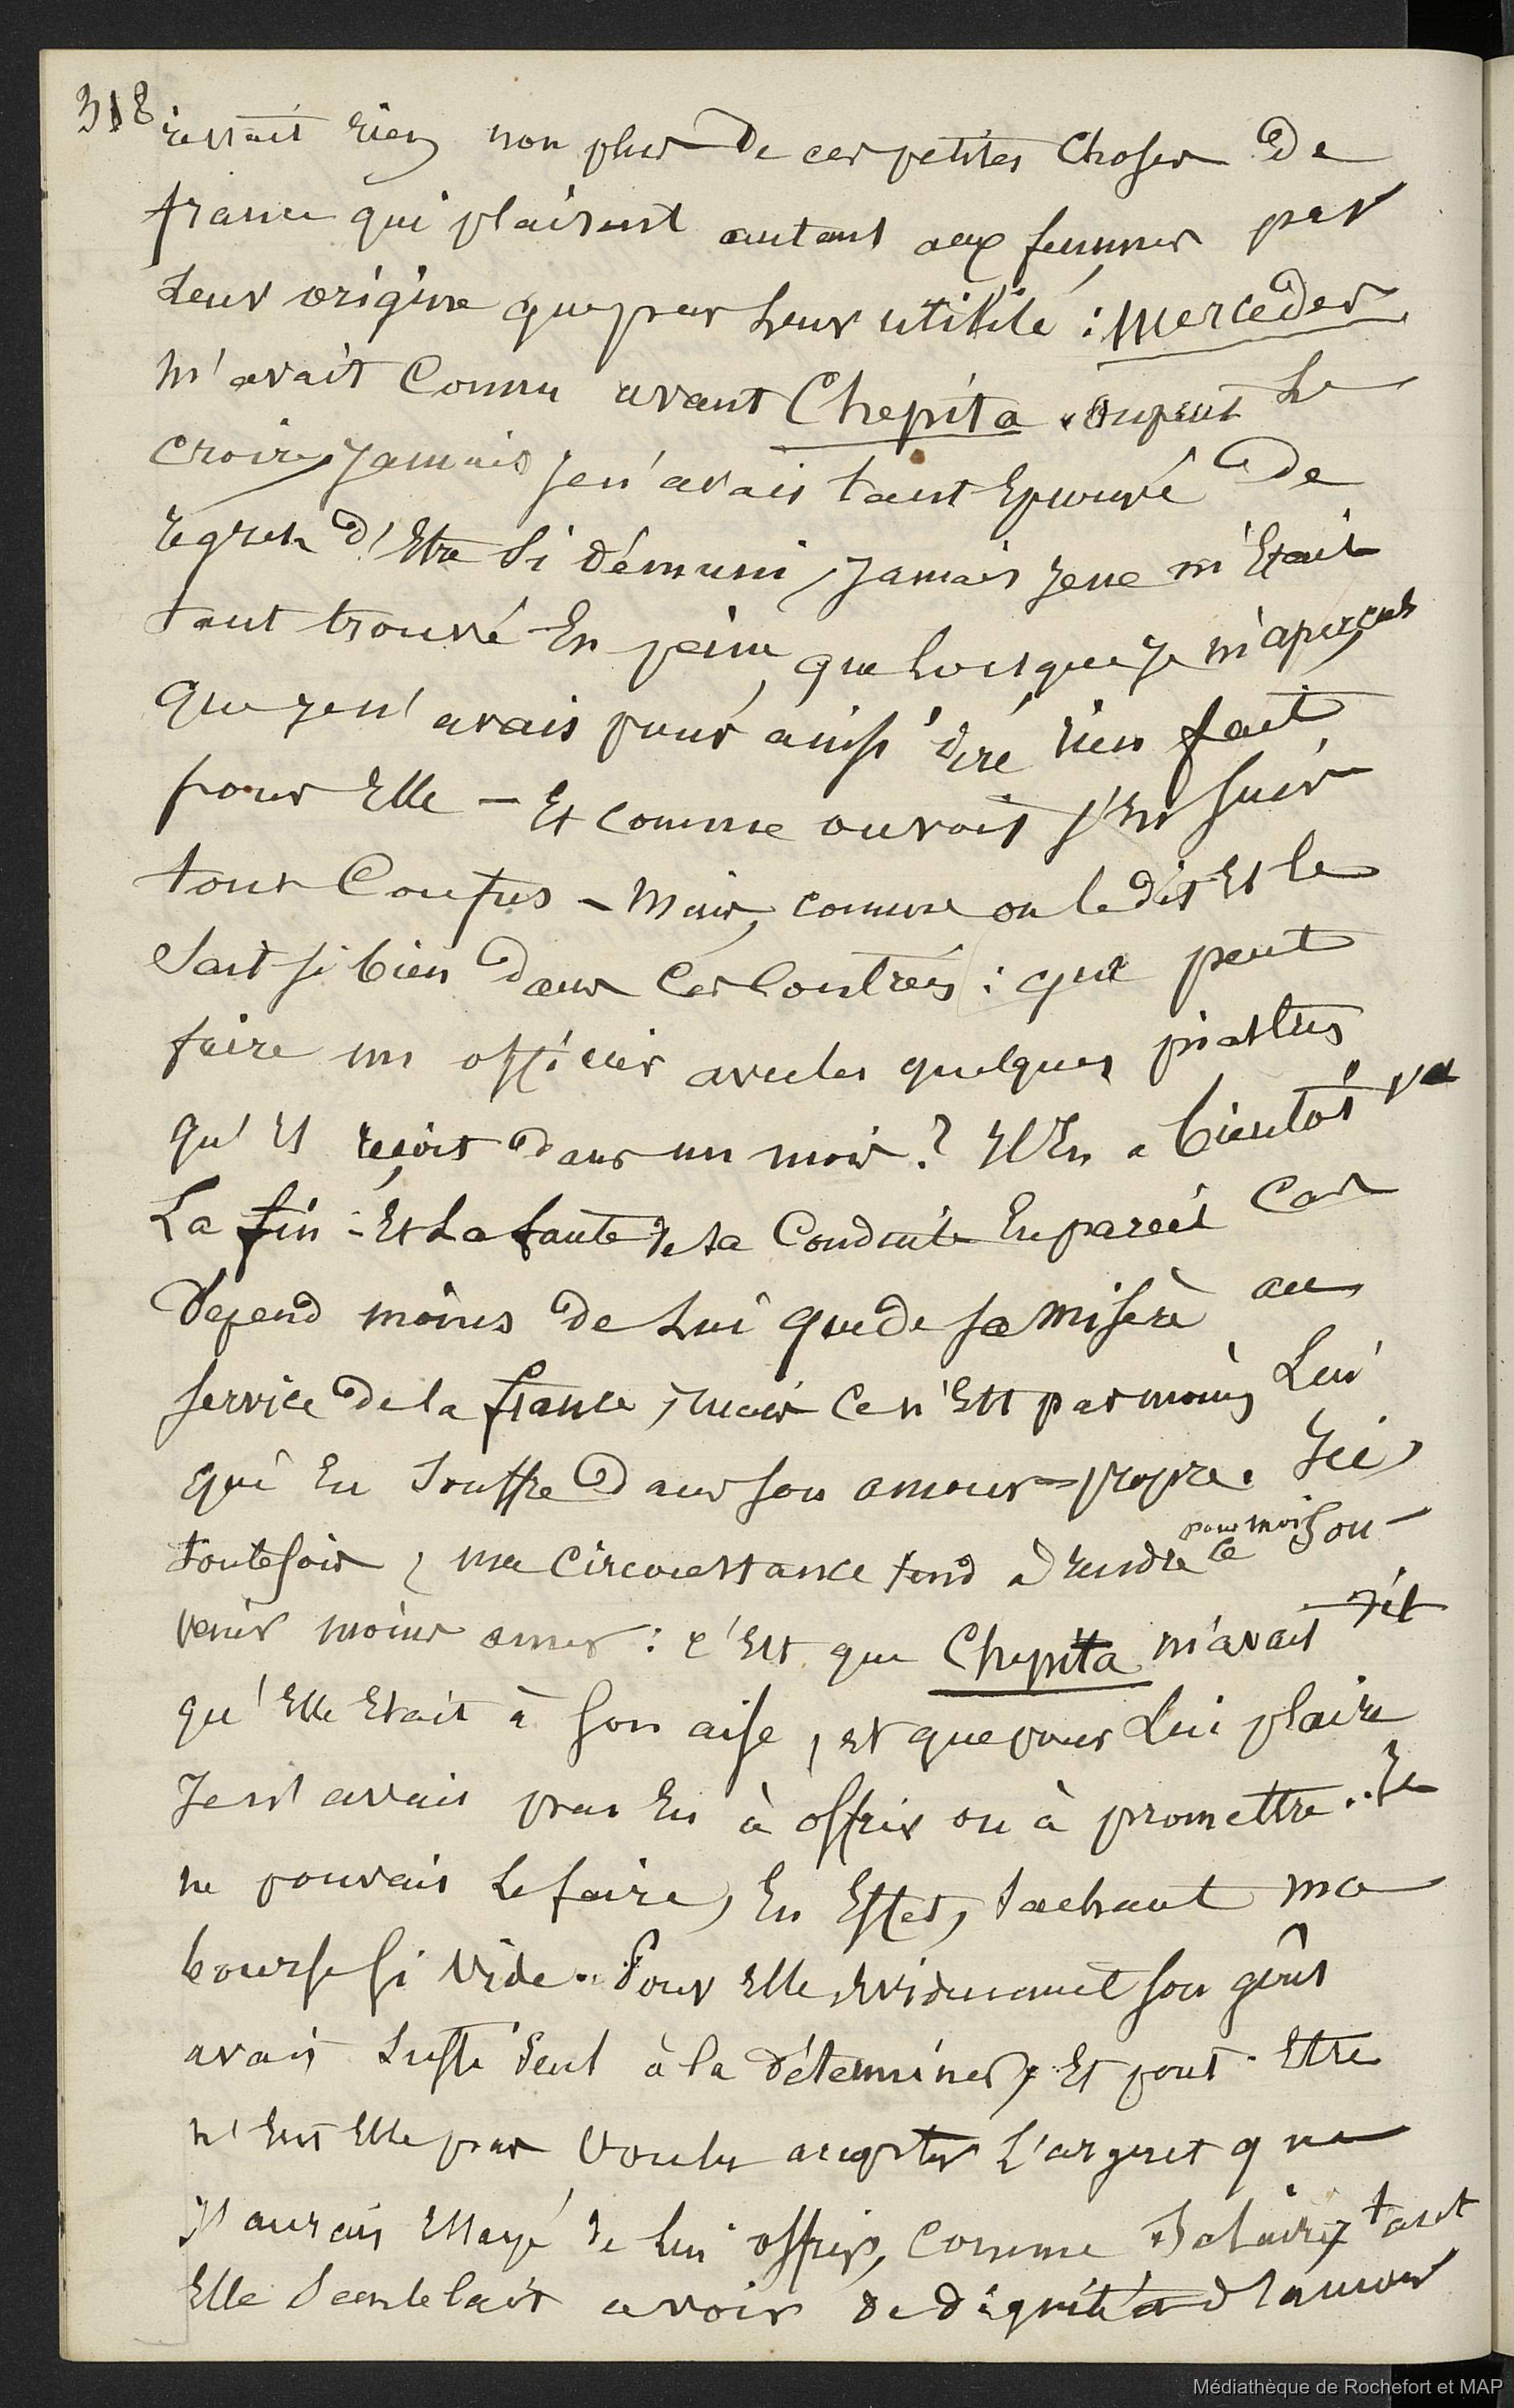 318
restait rien non plus de ces petites choses de
france qui plaisent autant aux femmes par
leur origine que par leur utilité : Mercedes
m'avait connu avant Chepita. On peut le
croire, jamais je n'avais tant Eprouvé de
regrets d'Etre si démuni, jamais je ne m'Etais
tant trouvé En peine, que lorsque je m'aperçus
que je n'avais pour ainsi dire rien fait
pour Elle — Et comme on voit j'En suis
tout Confus — Mais, comme on le dit Et le
sait si bien dans Ces Contrées : que peut
faire un officier avec les quelques piastres
qu'il reçoit dans un mois ? Il En a bientôt vu
La fin. Et la faute de sa Conduite En pareil Cas
Depend moins de Lui que de sa misère au
service de la france, mais Ce n'Est pas moins Lui
qui En souffre dans son amour-propre. Ici
toutefois, une Circonstance tend à rendre ce pour moi sou-
venir moins amer : c'Est que Chepita m'avait dit
qu'Elle Etait à son aise, et que pour Lui plaire
Je n'avais pas Eu à offrir ou à promettre.. Je
ne pouvais Le faire, En Effet, sachant ma
bourse si vide.. Pour Elle Evidemment son goût
avait suffi seul à la déterminer, Et peut-Etre
n'Eut Elle pas voulu accepter L'argent que
j'aurais Essayé de Lui offrir, Comme salaire, tant
Elle semblait avoir de dignité d'amour